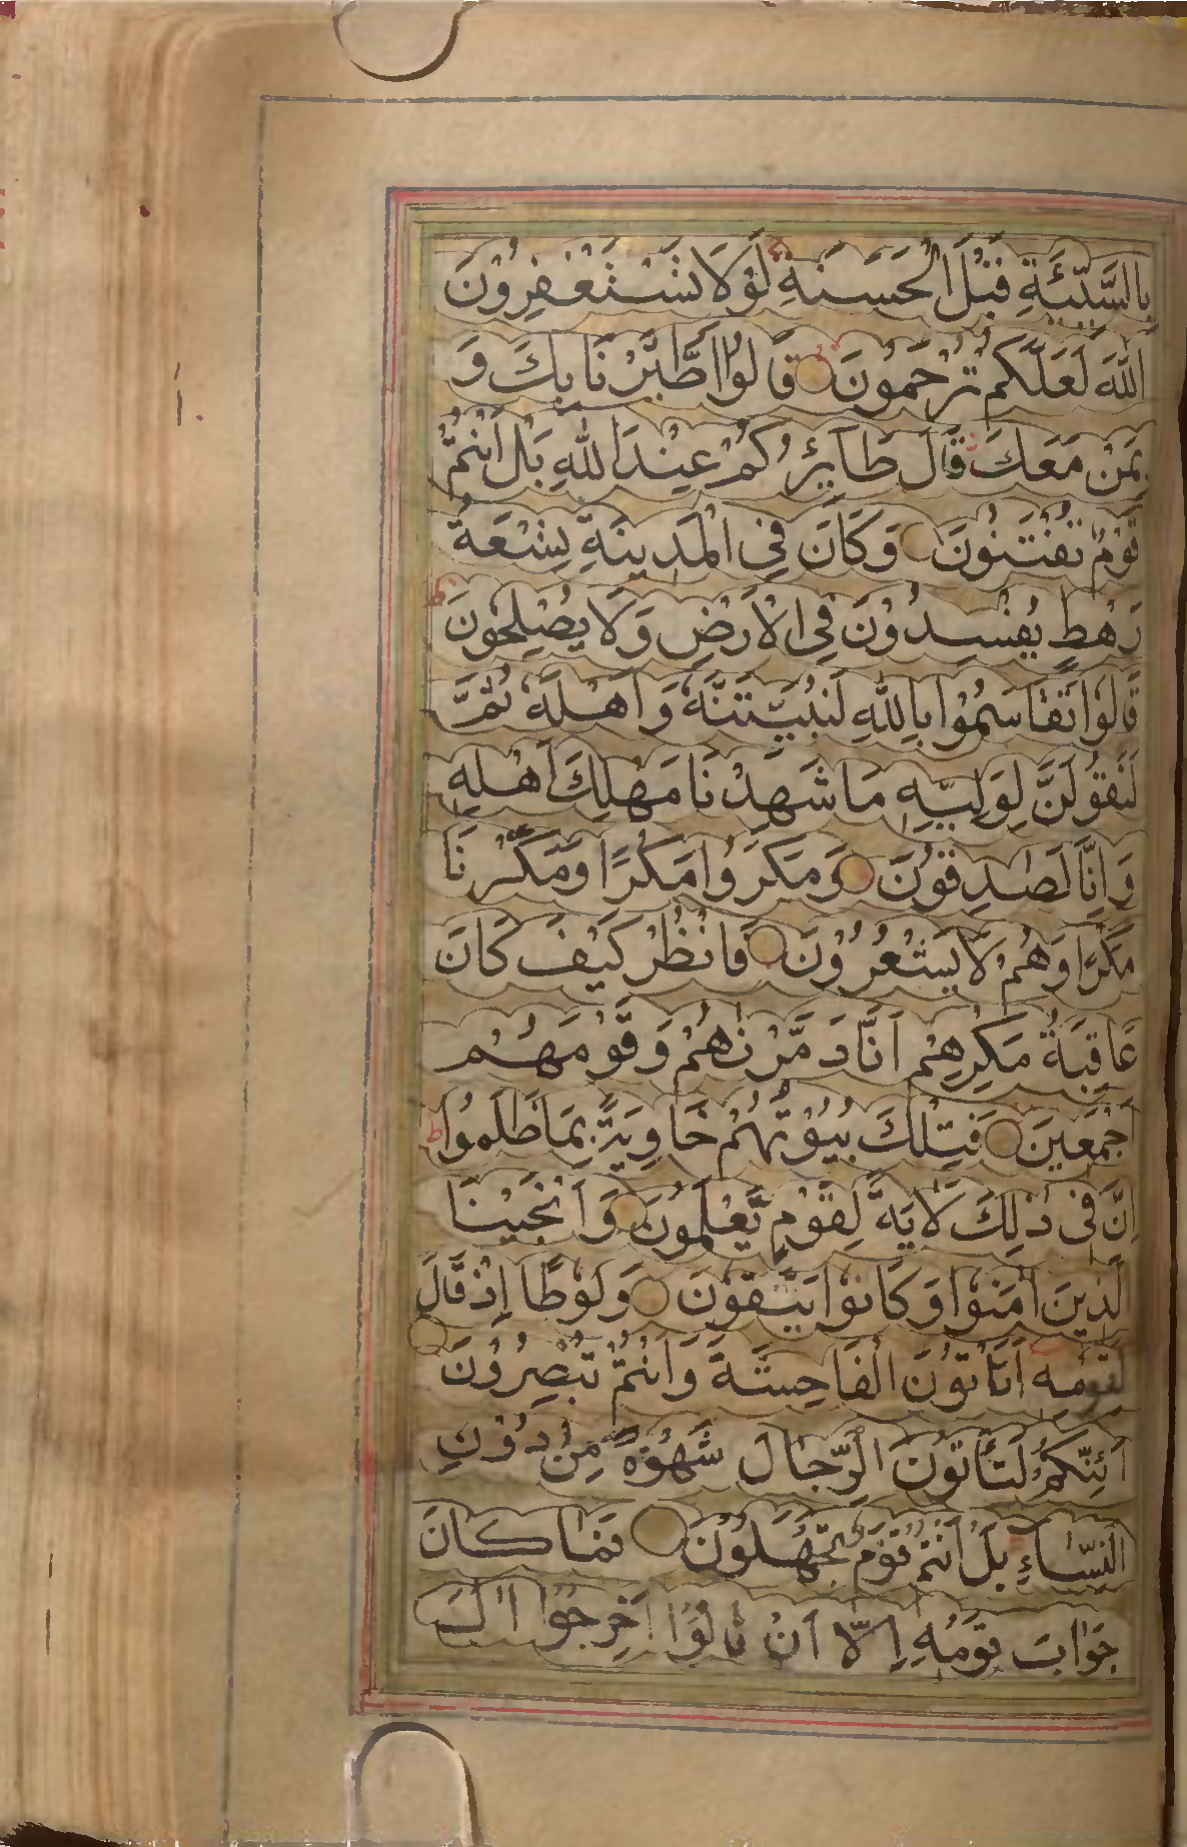 بِالسَّيِّئَةِ قَبْلَ الْحَسَنَةِ لَوْلَا تَسْتَغْفِرُوْنَ
اللّٰهَ لَعَلَّكُمْ تُرْحَمُونَ قَالُوا اطَّيَّرْنَا بِكَ وَ
بِمَنْ مَعَكَ قَالَ طَآئِرُكُمْ عِنْدَ اللّٰهِ بَلْ اَنْتُمْ
قَوْمٌ تُفْتَنُونَ وَكَانَ فِي الْمَدِينَةِ تِسْعَةُ
رَهْطٍ يُفْسِدُوْنَ فِي الْاَرْضِ وَلَا يُصْلِحُونَ
قَالُوا تَقَاسَمُوْا بِاللّٰهِ لَنُبَيِّتَنَّهٗ وَاَهْلَهٗ ثُمَّ
لَنَقُوْلَنَّ لِوَلِيِّهٖ مَا شَهِدْنَا مَهْلِكَ اَهْلِهٖ
وَاِنَّا لَصٰدِقُوْنَ وَمَكَرُوا مَكْرًا وَمَكَرْنَا
مَكْرًا وَهُمْ لَا يَشْعُرُوْنَ فَانْظُرْ كَيْفَ كَانَ
عَاقِبَةُ مَكْرِهِمْ اَنَّا دَمَّرْنٰهُمْ وَقَوْمَهُمْ
اَجْمَعِينَ فَتِلْكَ بُيُوْتُهُمْ خَاوِيَةً بِمَا ظَلَمُوْا
اِنَّ فِي ذٰلِكَ لَاٰيَةً لِقَوْمٍ يَّعْلَمُونَ وَاَنْجَيْنَا
الَّذِينَ اٰمَنُوْا وَكَانُوْا يَتَّقُوْنَ وَلُوْطًا اِذْ قَالَ
لِقَوْمِهٖ اَتَاْتُوْنَ الْفَاحِشَةَ وَاَنْتُمْ تُبْصِرُوْنَ
اَئِنَّكُمْ لَتَأْتُوْنَ الرِّجَالَ شَهْوَةً مِنْ دُوْنِ
النِّسَاءِ بَلْ اَنْتُمْ قَوْمٌ تَجْهَلُوْنَ فَمَا كَانَ
جَوَابَ قَوْمِهٖ اِلَّا اَنْ قَالُوْا اَخْرِجُوْا اٰلَ